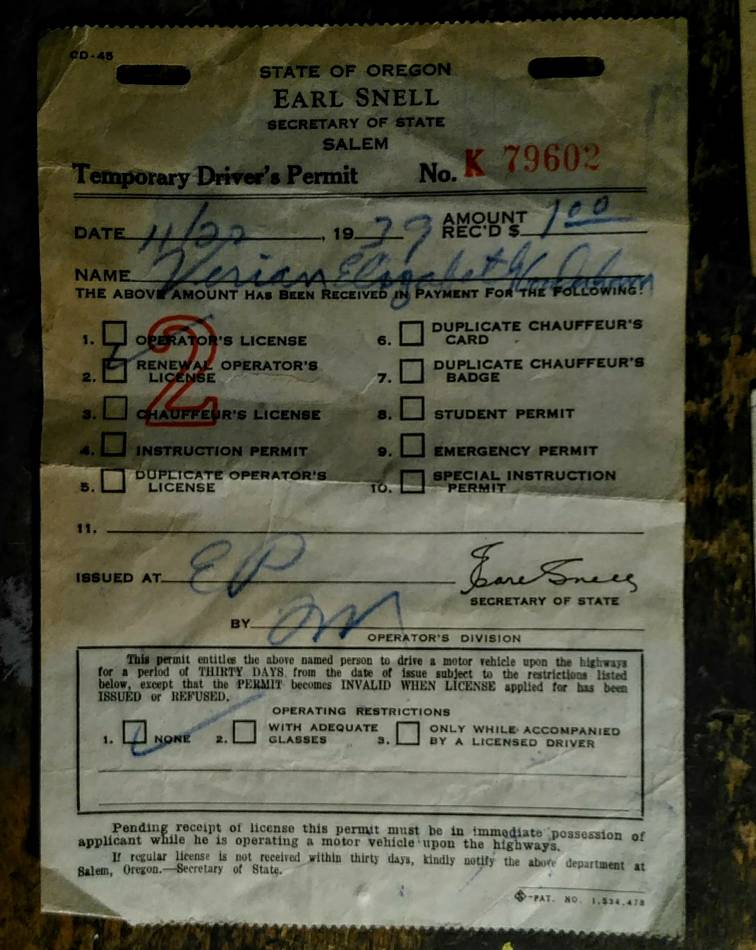 CD-45
STATE OF OREGON
EARL SNELL
SECRETARY OF STATE
SALEM
Temporary Driver's Permit No. K 79602
DATE 11/22, 1939 AMOUNT REC'D $ 1 00
NAME Elizabeth
THE ABOVE AMOUNT HAS BEEN RECEIVED IN PAYMENT FOR THE FOLLOWING:
2
1. OPERATOR'S LICENSE
2. RENEWAL OPERATOR'S LICENSE
3. CHAUFFEUR'S LICENSE
4. INSTRUCTION PERMIT
5. DUPLICATE OPERATOR'S LICENSE
6. DUPLICATE CHAUFFEUR'S CARD
7. DUPLICATE CHAUFFEUR'S BADGE
8. STUDENT PERMIT
9. EMERGENCY PERMIT
10. SPECIAL INSTRUCTION PERMIT
11.
ISSUED AT EP Earl Snell
SECRETARY OF STATE
BY
OPERATOR'S DIVISION
This permit entitles the above named person to drive a motor vehicle upon the highways
for a period of THIRTY DAYS from the date of issue subject to the restrictions listed
below, except that the PERMIT becomes INVALID WHEN LICENSE applied for has been
ISSUED or REFUSED.
OPERATING RESTRICTIONS
1. NONE 2. WITH ADEQUATE GLASSES 3. ONLY WHILE ACCOMPANIED BY A LICENSED DRIVER
Pending receipt of license this permit must be in immediate possession of
applicant while he is operating a motor vehicle upon the highways.
If regular license is not received within thirty days, kindly notify the above department at
Salem, Oregon.—Secretary of State.
PAT. NO. 1,534,478